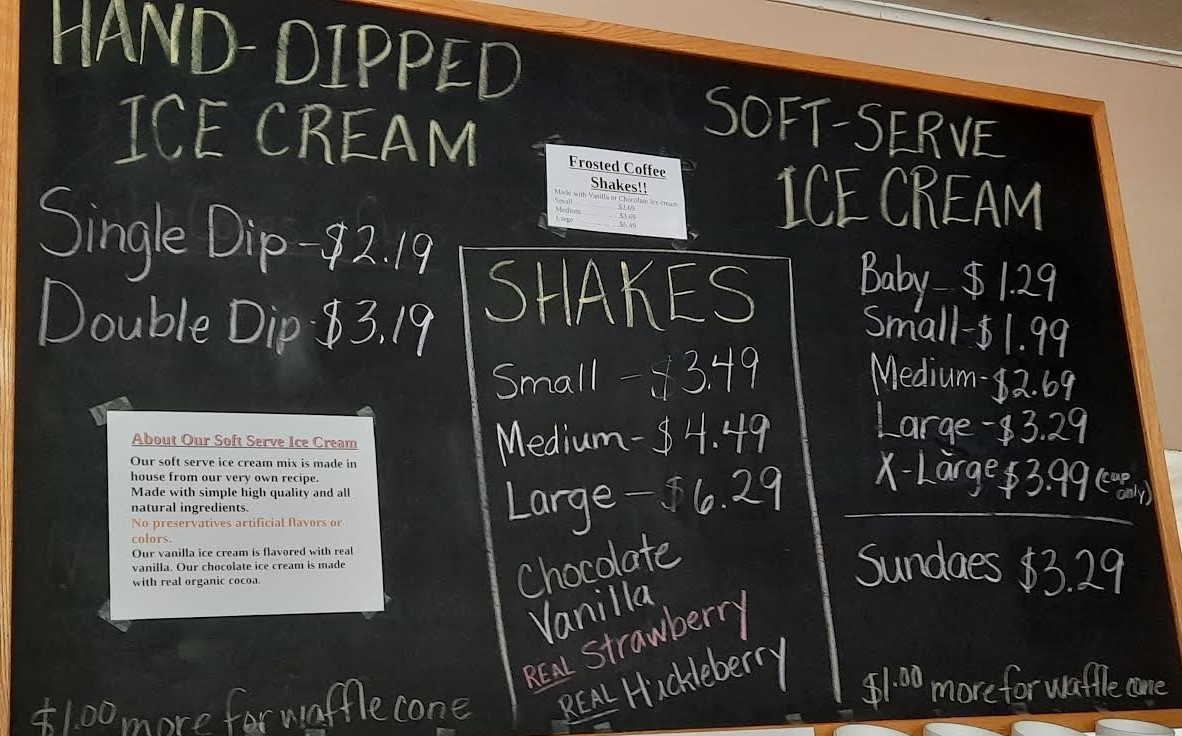 HAND-DIPPED
ICE CREAM
Single Dip - $2.19
Double Dip - $3.19
About Our Soft Serve Ice Cream
Our soft serve ice cream mix is made in
house from our very own recipe.
Made with simple high quality and all
natural ingredients.
No preservatives artificial flavors or
colors.
Our vanilla ice cream is flavored with real
vanilla. Our chocolate ice cream is made
with real organic cocoa.
$1.00 more for waffle cone
Frosted Coffee
Shakes!!
Made with Vanilla or Chocolate ice cream
Small $2.69
Medium $3.69
Large $5.49
SHAKES
Small - $3.49
Medium - $4.49
Large - $6.29
Chocolate
Vanilla
REAL Strawberry
REAL Huckleberry
SOFT-SERVE
ICE CREAM
Baby - $1.29
Small - $1.99
Medium - $2.69
Large - $3.29
X-Large $3.99 (cup only)
Sundaes $3.29
$1.00 more for waffle cone